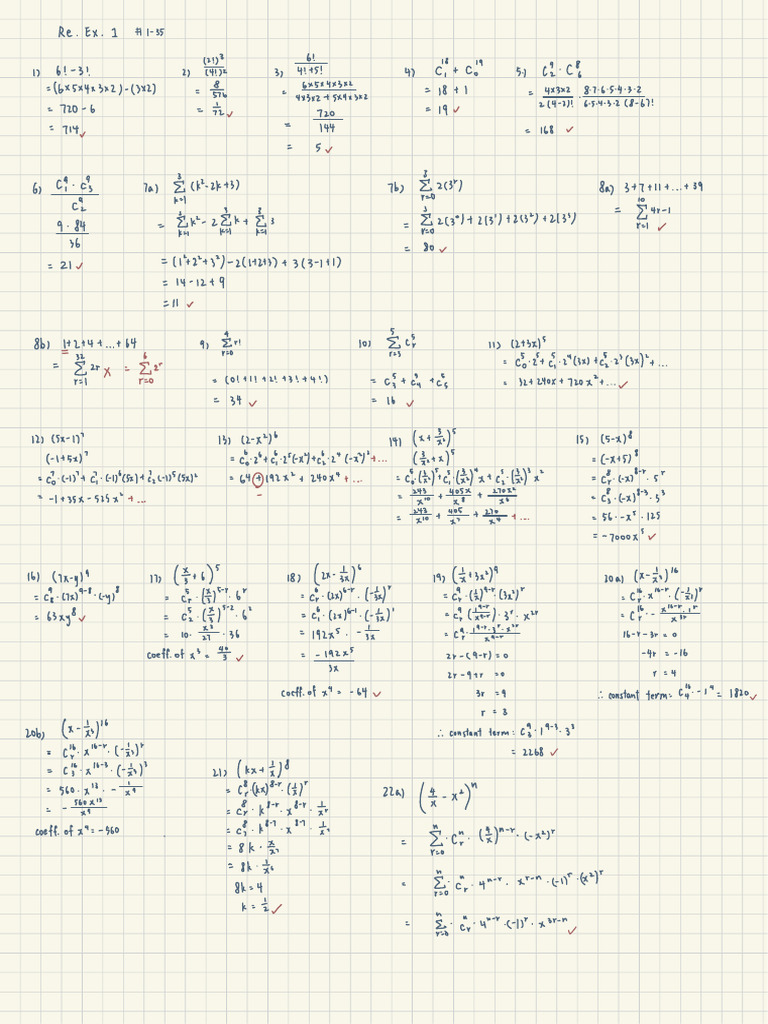 Re. Ex. 1 #1-35
1) 6! - 3!
= (6×5×4×3×2) - (3×2)
= 720 - 6
= 714 ✓
2) (2!)³/(4!)²
= 8/576
= 1/72 ✓
3) 6!/(4!+5!)
= (6×5×4×3×2)/(4×3×2+5×4×3×2)
= 720/144
= 5 ✓
4) C₁¹⁸ + C₀¹⁹
= 18 + 1
= 19 ✓
5) C₂⁹ · C₆⁸
= 168 ✓
6) (C₁⁹ · C₃⁹)/C₂⁹
(9 · 84)/36
= 21 ✓
7a) Σₖ₌₁³ (k²-2k+3)
= Σₖ₌₁³ k² - 2 Σₖ₌₁³ k + Σₖ₌₁³ 3
= (1²+2²+3²) - 2(1+2+3) + 3(3-1+1)
= 14 - 12 + 9
= 11 ✓
7b) Σ 2(3ʳ)
= Σ 2(3⁰) + 2(3¹) + 2(3²) + 2(3³)
= 80 ✓
8a) 3+7+11+...+39
= Σᵣ₌₁¹⁰ 4r-1 ✓
8b) 1+2+4+...+64
= Σᵣ₌₁³² 2r ✗ = Σᵣ₌₀⁶ 2ʳ
9) Σᵣ₌₀⁴ r!
= (0!+1!+2!+3!+4!)
= 34 ✓
10) Σᵣ₌₃⁵ Cᵣ⁵
= C₃⁵ + C₄⁵ + C₅⁵
= 16 ✓
11) (2+3x)⁵
= C₀⁵·2⁵ + C₁⁵·2⁴(3x) + C₂⁵·2³(3x)² + ...
= 32 + 240x + 720x² + ... ✓
12) (5x-1)⁷
(-1+5x)⁷
= C₀⁷·(-1)⁷ + C₁⁷·(-1)⁶(5x) + C₂⁷(-1)⁵(5x)²
= -1 + 35x - 525x² + ...
13) (2-x²)⁶
= C₀⁶·2⁶ + C₁⁶·2⁵(-x²) + C₂⁶·2⁴(-x²)² + ...
= 64 + 192x² + 240x⁴ + ...
-
14) (x + 3/x²)⁵
(3/x² + x)⁵
= C₀⁵(3/x²)⁵ + C₁⁵·(3/x²)⁴x + C₂⁵·(3/x²)³x²
= 243/x¹⁰ + 405x/x⁸ + 270x²/x⁶
= 243/x¹⁰ + 405/x⁷ + 270/x⁴ + ...
15) (5-x)⁸
= (-x+5)⁸
= Cᵣ⁸·(-x)⁸⁻ʳ·5ʳ
= C₃⁸·(-x)⁸⁻³·5³
= 56·-x⁵·125
= -7000x⁵ ✓
16) (7x-y)⁹
= C₈⁹·(7x)⁹⁻⁸·(-y)⁸
= 63xy⁸ ✓
17) (x/3 + 6)⁵
= Cᵣ⁵·(x/3)⁵⁻ʳ·6ʳ
= C₂⁵·(x/3)⁵⁻²·6²
= 10·x³/27·36
coeff. of x³ = 40/3 ✓
18) (2x - 1/3x)⁶
= Cᵣ⁶·(2x)⁶⁻ʳ·(-1/3x)ʳ
= C₁⁶·(2x)⁶⁻¹·(-1/3x)¹
= 192x⁵·-1/3x
= -192x⁵/3x
coeff. of x⁴ = -64 ✓
19) (1/x + 3x²)⁹
= Cᵣ⁹·(1/x)⁹⁻ʳ·(3x²)ʳ
= Cᵣ⁹(1⁹⁻ʳ/x⁹⁻ʳ)·3ʳ·x²ʳ
= Cᵣ⁹·(1⁹⁻ʳ·3ʳ·x²ʳ)/x⁹⁻ʳ
2r-(9-r) = 0
2r-9+r = 0
3r = 9
r = 3
∴ constant term: C₃⁹·1⁹⁻³·3³
= 2268 ✓
20a) (x - 1/x³)¹⁶
= Cᵣ¹⁶·x¹⁶⁻ʳ·(-1/x³)ʳ
= Cᵣ¹⁶·-(x¹⁶⁻ʳ·1ʳ)/x³ʳ
16-r-3r = 0
-4r = -16
r = 4
∴ constant term: C₄¹⁶·-1⁴ = 1820 ✓
20b) (x - 1/x³)¹⁶
= Cᵣ¹⁶·x¹⁶⁻ʳ·(-1/x³)ʳ
= C₃¹⁶·x¹⁶⁻³·(-1/x³)³
= 560·x¹³·-1/x⁹
= -560x¹³/x⁹
coeff. of x⁴ = -560
21) (kx + 1/x)⁸
= Cᵣ⁸·(kx)⁸⁻ʳ·(1/x)ʳ
= Cᵣ⁸·k⁸⁻ʳ·x⁸⁻ʳ·1/xʳ
= C₇⁸·k⁸⁻⁷·x⁸⁻⁷·1/x⁷
= 8k·x/x⁷
= 8k·1/x⁶
8k = 4
k = 1/2 ✓
22a) (4/x - x²)ⁿ
= Σᵣ₌₀ⁿ·Cᵣⁿ·(4/x)ⁿ⁻ʳ·(-x²)ʳ
= Σᵣ₌₀ⁿ·Cᵣⁿ·4ⁿ⁻ʳ·xʳ⁻ⁿ·(-1)ʳ·(x²)ʳ
= Σᵣ₌₀ⁿ·Cᵣⁿ·4ⁿ⁻ʳ·(-1)ʳ·x³ʳ⁻ⁿ ✓